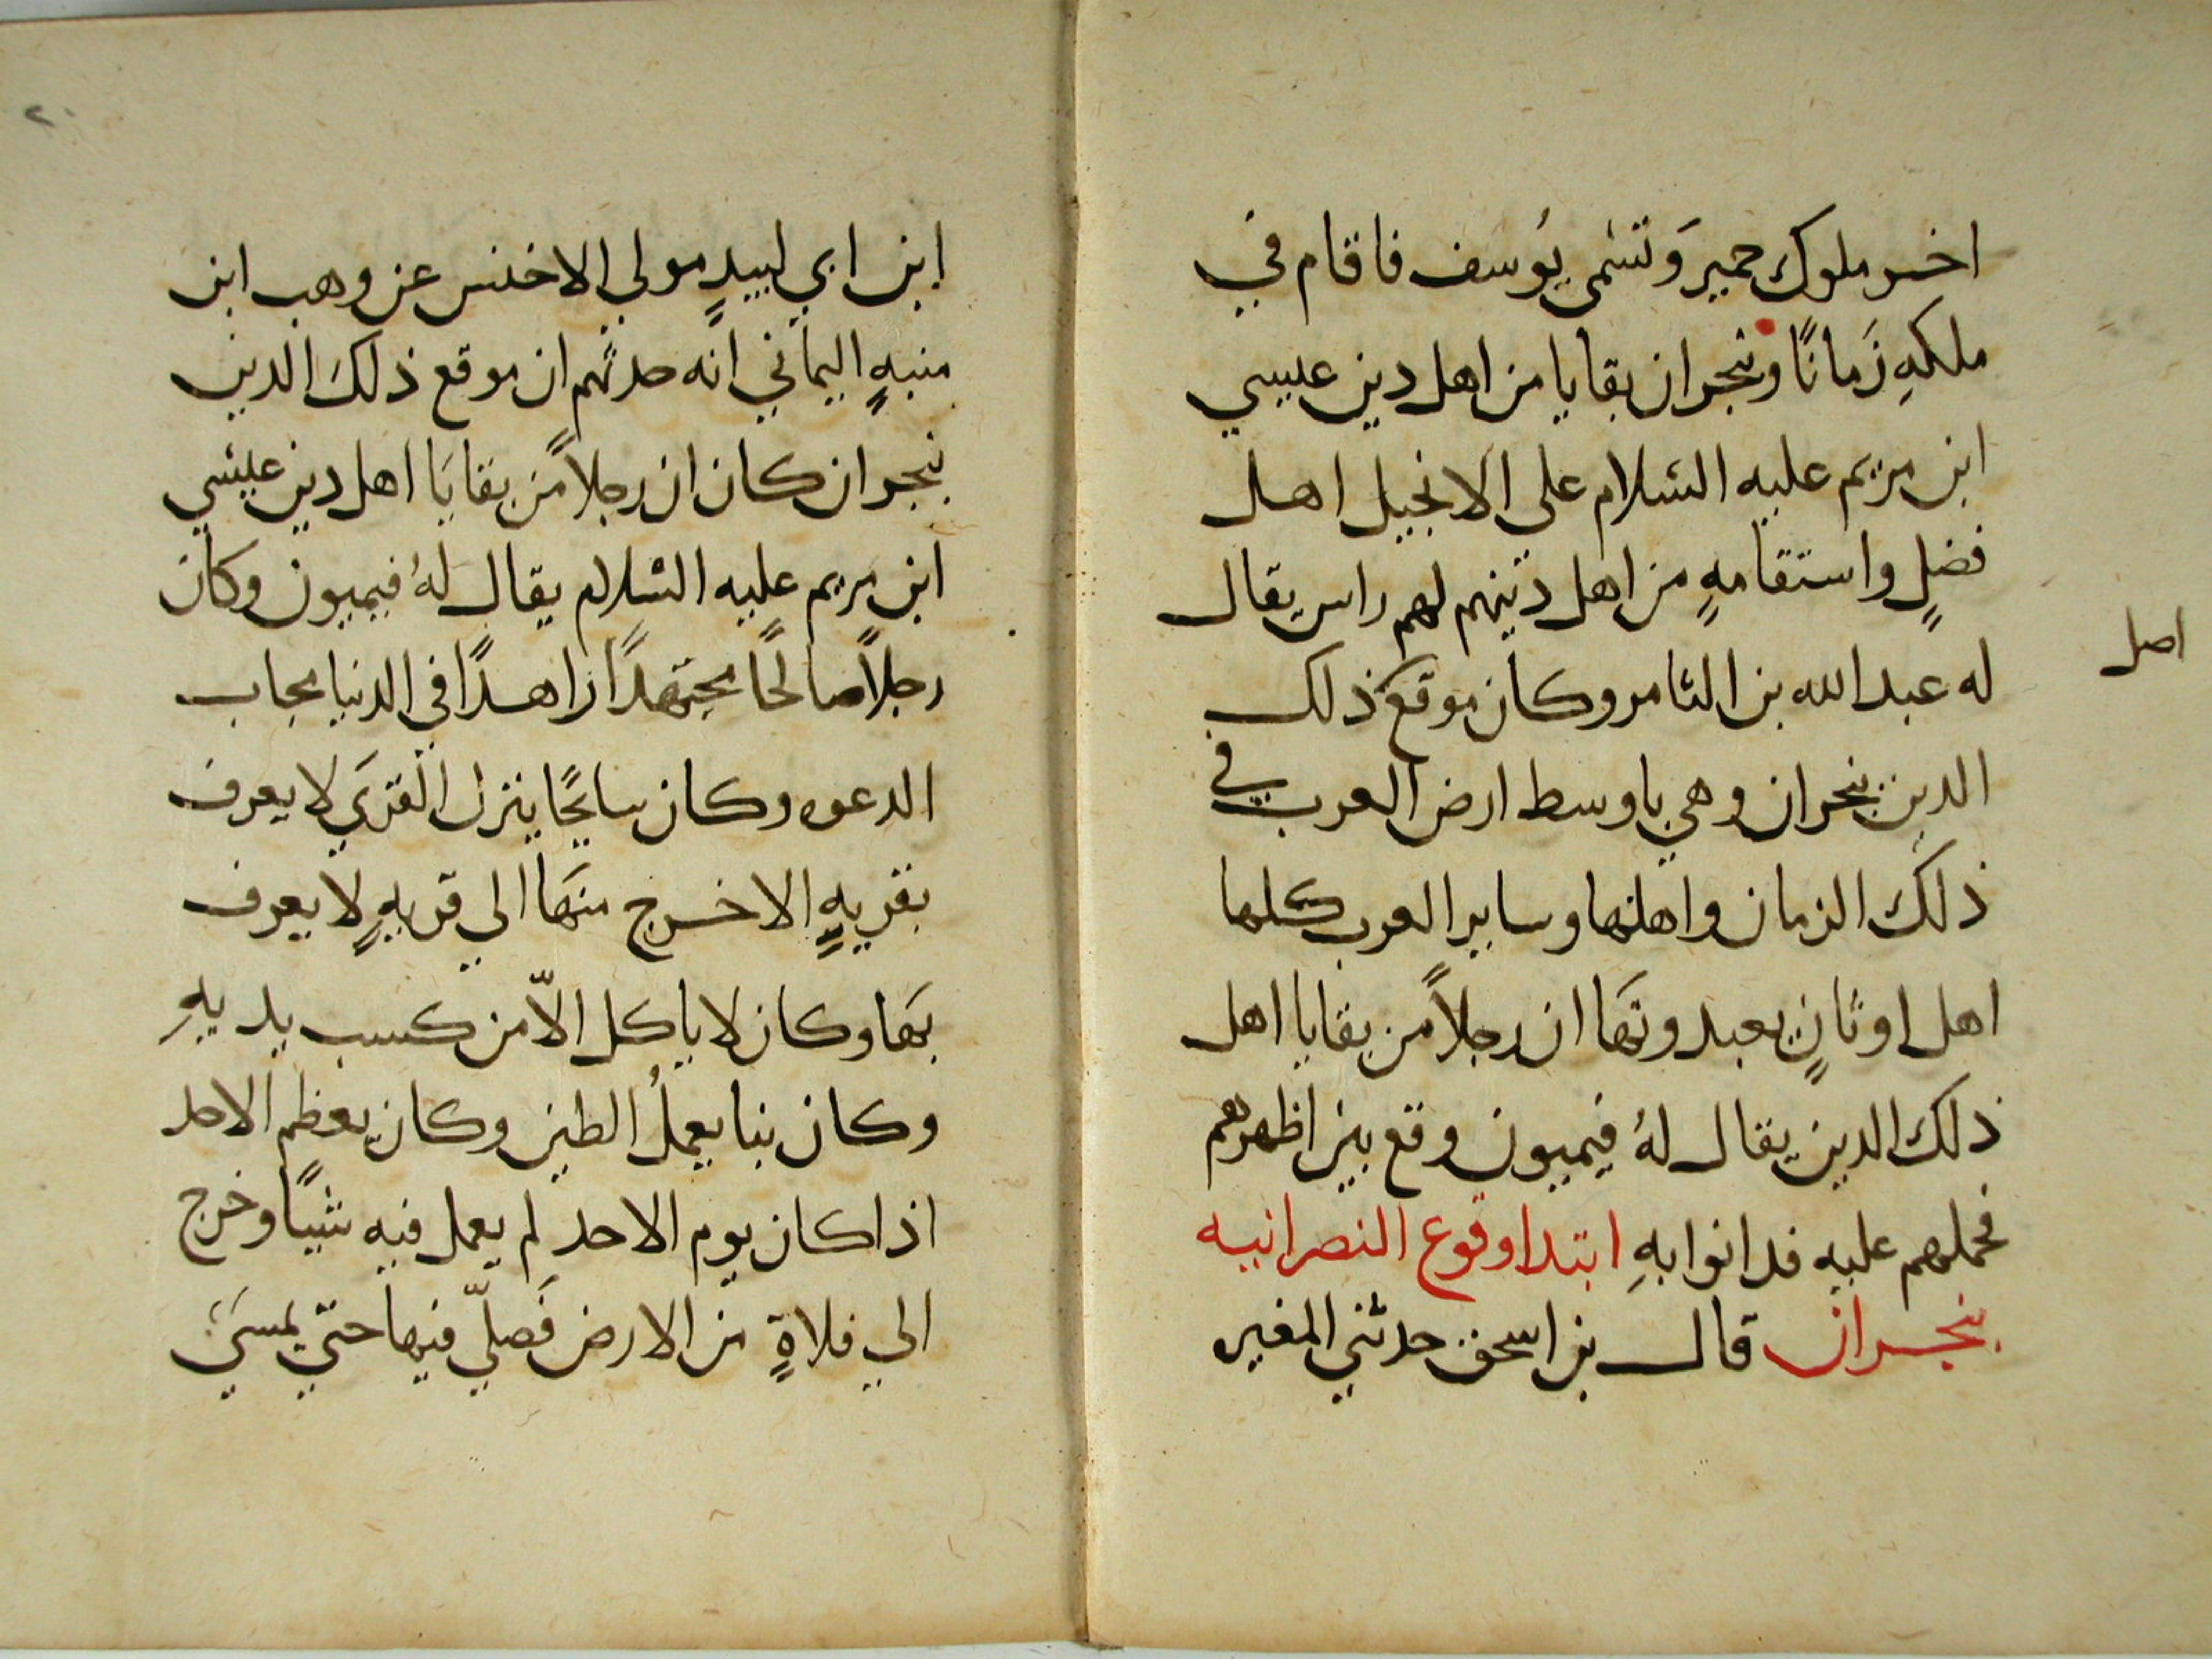 اخر ملوك حمير وَتسَمى يوُسف فاقام في
ملكهِ زَمانًا وبنجران بقايا من اهل دين عيسي
ابن مريم عليه السَلام على الانجيل اهل
فضلٍ واستقامهٍ من اهل دينهم لهم راس يقال
له عبدالله بن الثامر وكان موقع ذلك
اصل
الدين بنجران وهي باوسط ارض العرب في
ذلك الزمان واهلها وساير العرب كلها
اهل اوثانٍ يعبدونَها ان رجلاً من بقايا اهل
ذلك الدين يقال لهُ فيميون وقع بين اظهرهم
فحملهم عليه فدانوا بهِ ابتدا وقوع النصرانيه
بنجران قال بن اسحق حدثني المغيره
٢٠
ابن ابي لبيدٍ مولي الاخنس عن وهب ابن
منبهٍ اليماني انه حدثهم ان موقع ذلكَ الدين
بنجران كان ان رجلاً من بقايَا اهل دين عيسَي
ابن مريم عليه السَلام يقال لهُ فيميون وكان
رجلاً صالحًا مجتهدًا زاهدًا في الدنيا مجاب
الدعوه وكان سايحًا ينزل القرَي لا يعرف
بقريهٍ الا خرج منهَا الي قريهٍ لا يعرف
بهَا وكان لا ياكل الاّ من كسب يديهِ
وكان بنا يعملُ الطين وكان يعظم الاحد
اذا كان يوم الاحد لم يعمل فيه شيًا وخرج
الي فلاةٍ من الارض فَصلّي فيها حتي يمسَي